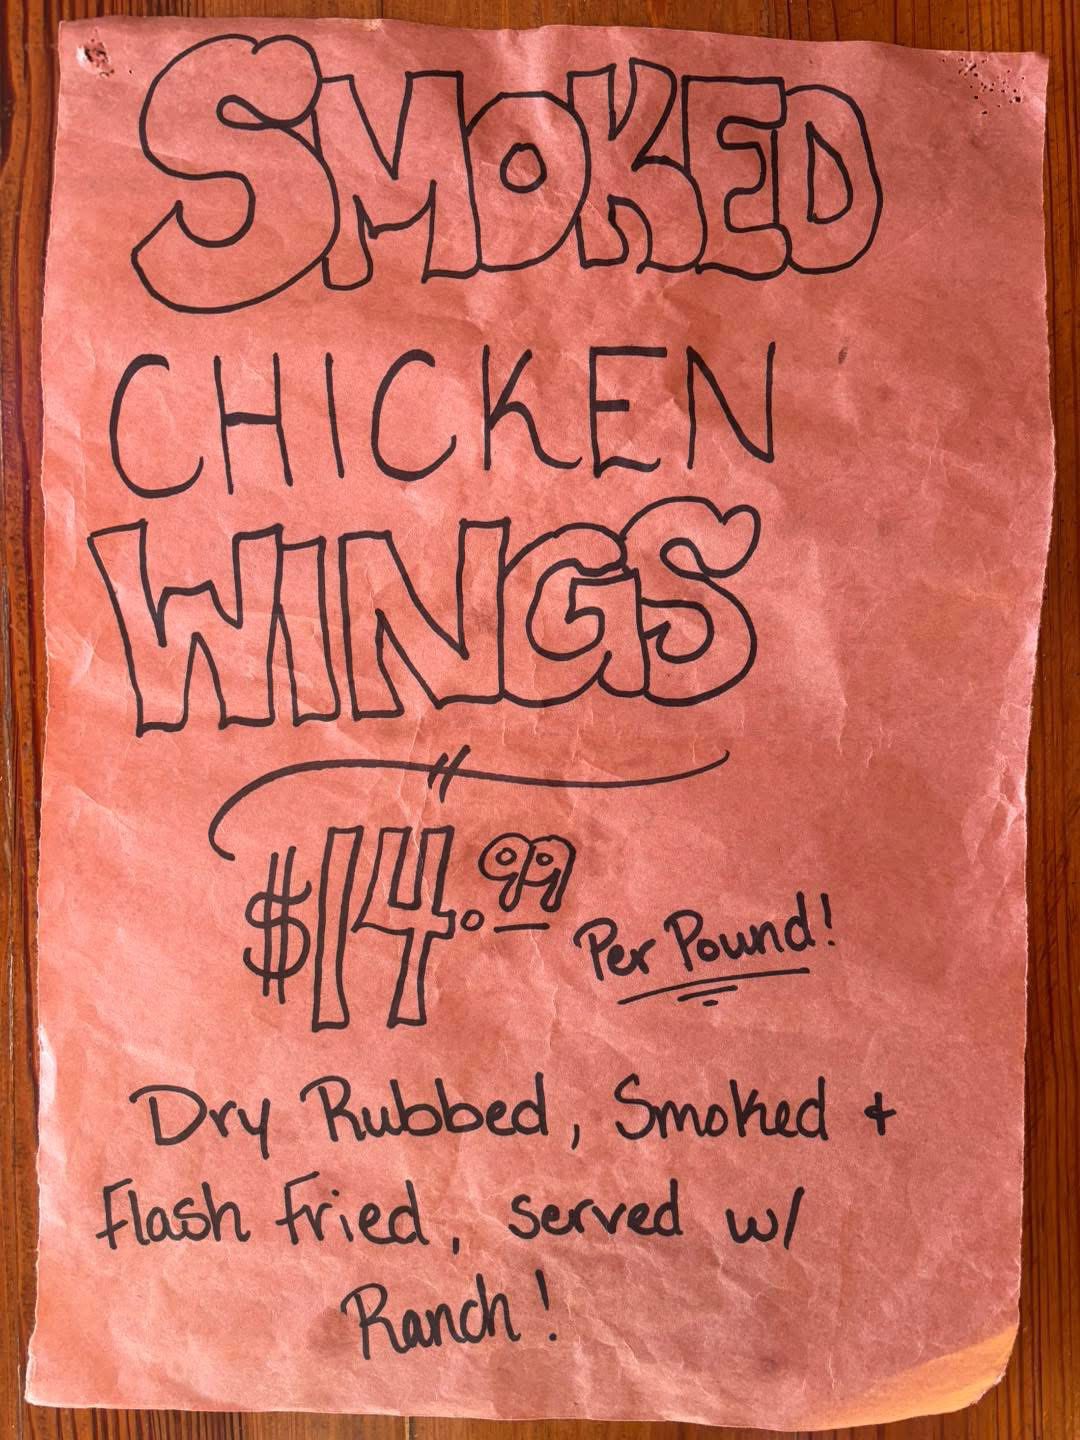 SMOKED
CHICKEN
WINGS
$14.99 Per Pound!
Dry Rubbed, Smoked +
Flash Fried, served w/
Ranch!